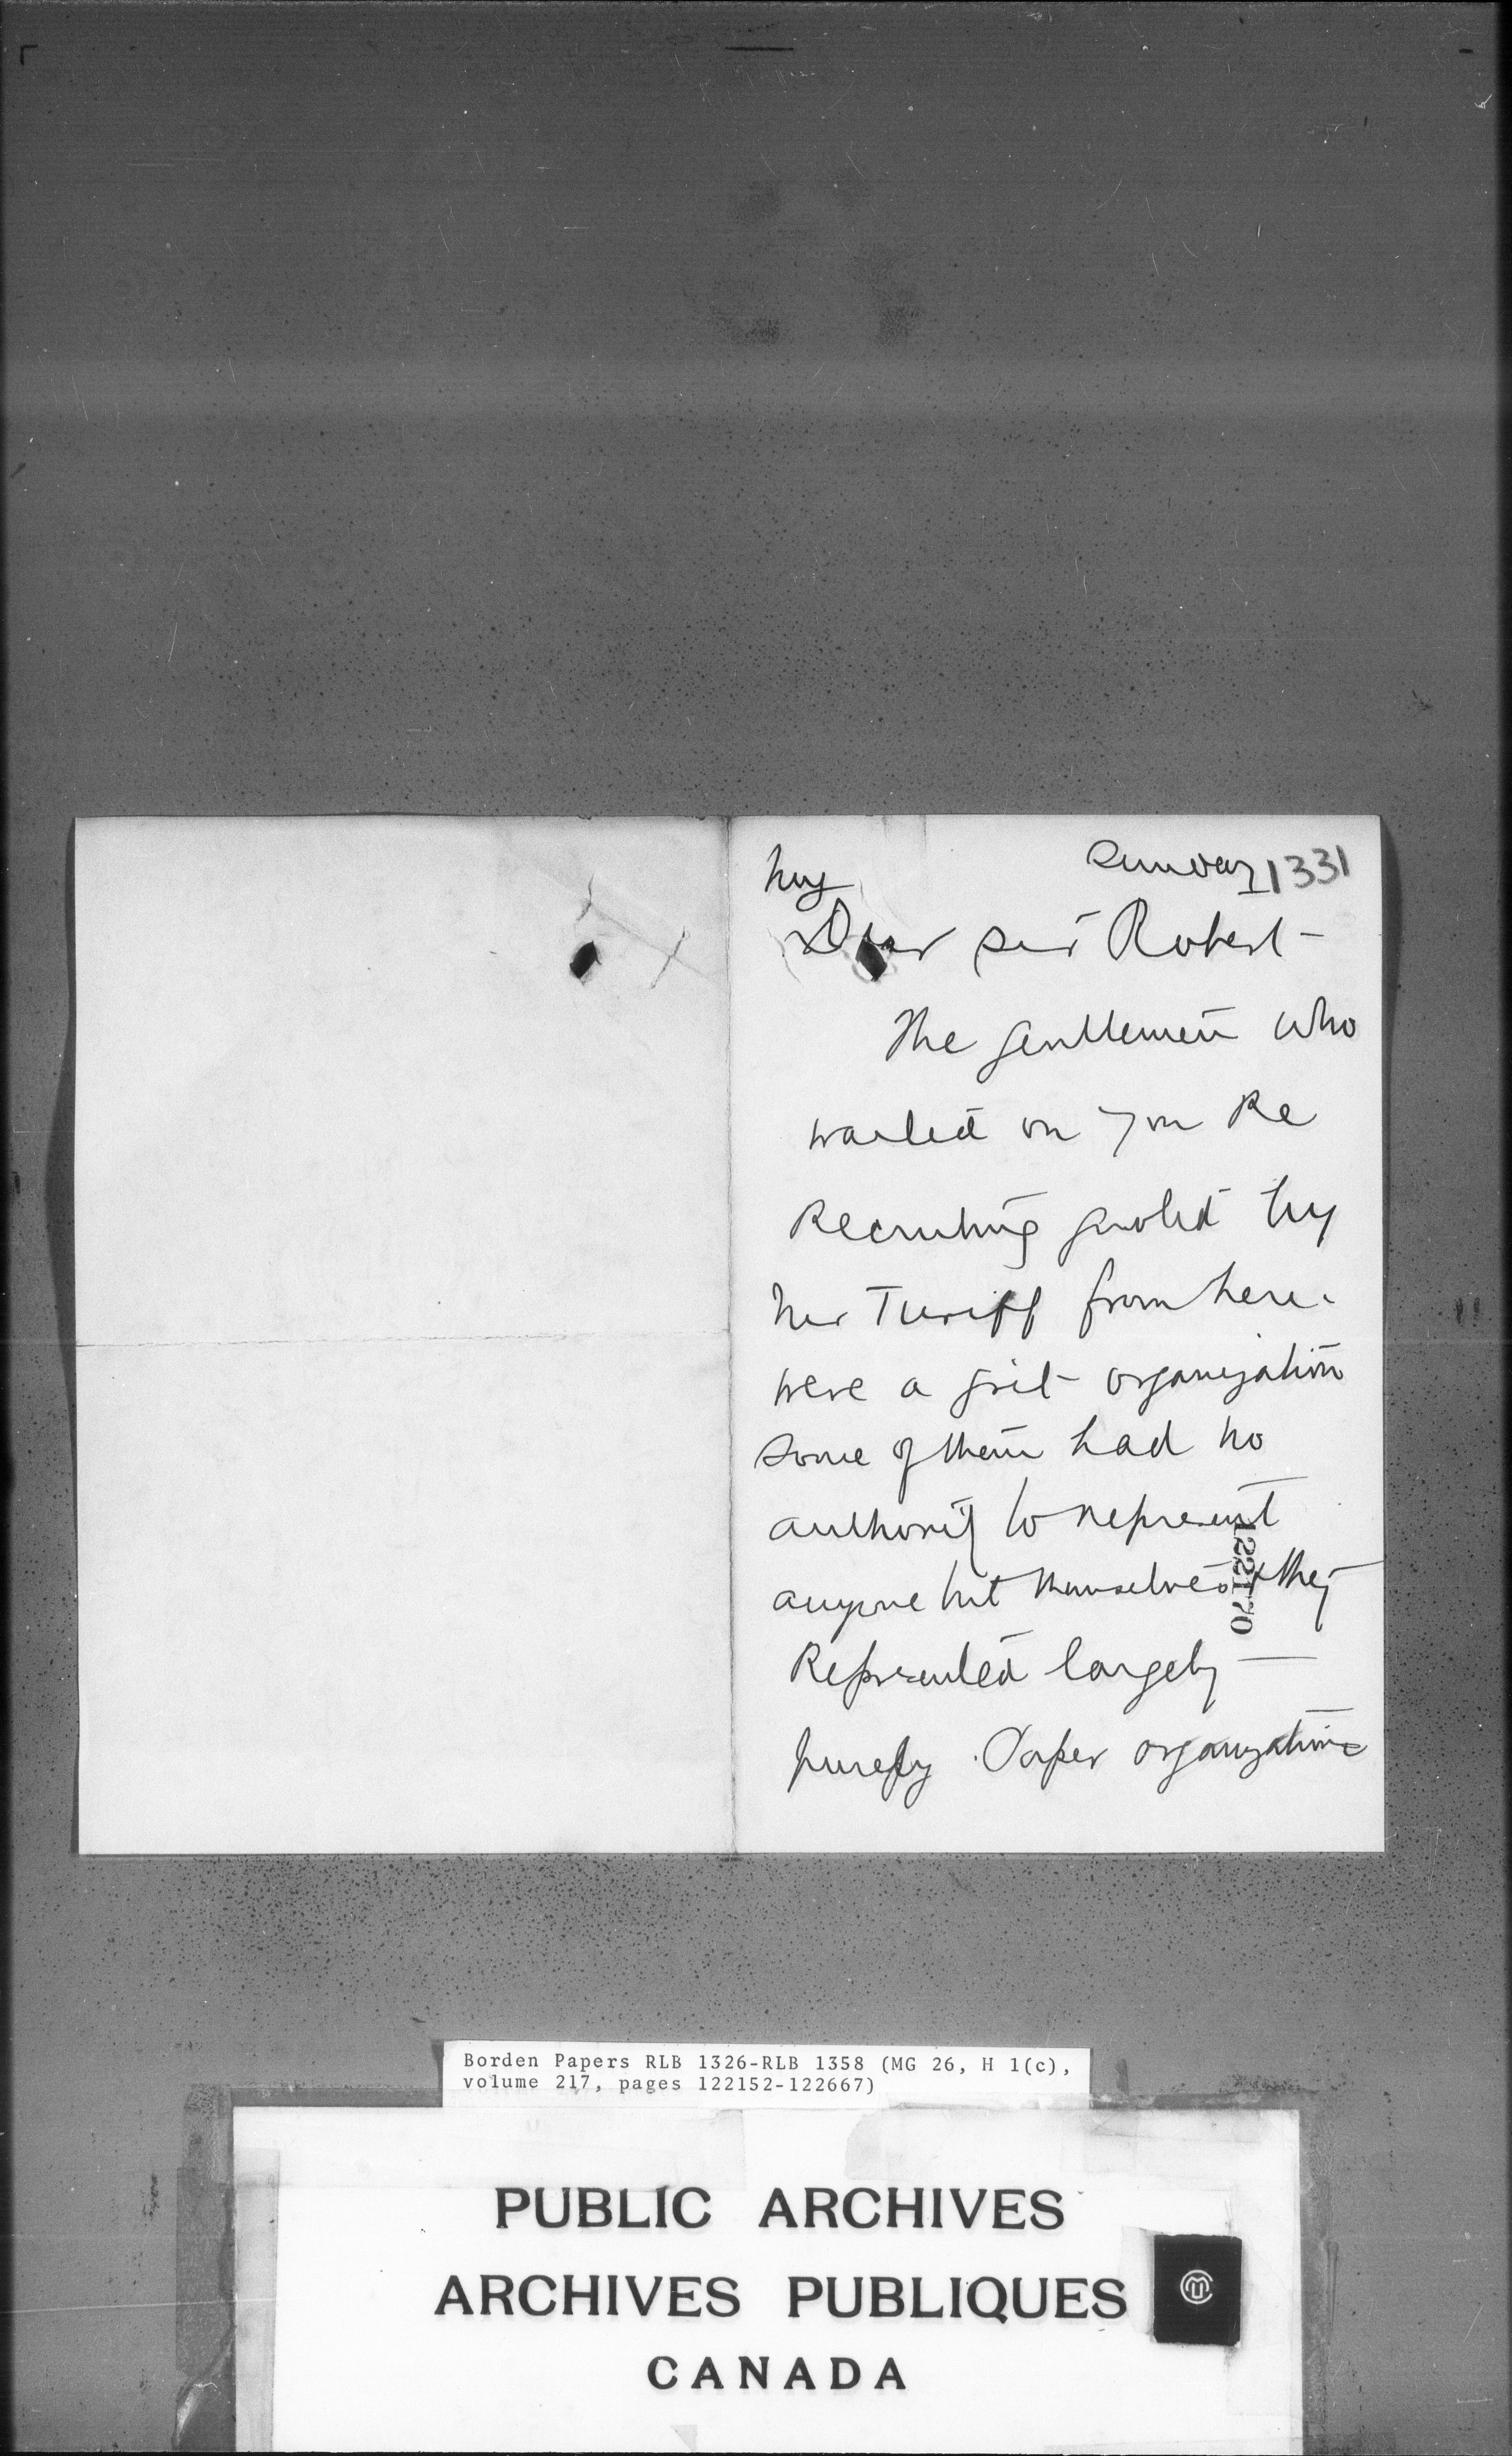 Sunday 1331
My
Dear Sir Robert -
The gentlemen who
waited on you Re
Recruiting quoted by
Mr Turiff from here.
were a grit organization
Some of them had no
authority to represent
anyone but themselves & they
122170
Represented largely —
purely Paper organizations
Borden Papers RLB 1326-RLB 1358 (MG 26, H 1(c),
volume 217, pages 122152-122667)
PUBLIC ARCHIVES
ARCHIVES PUBLIQUES
CANADA